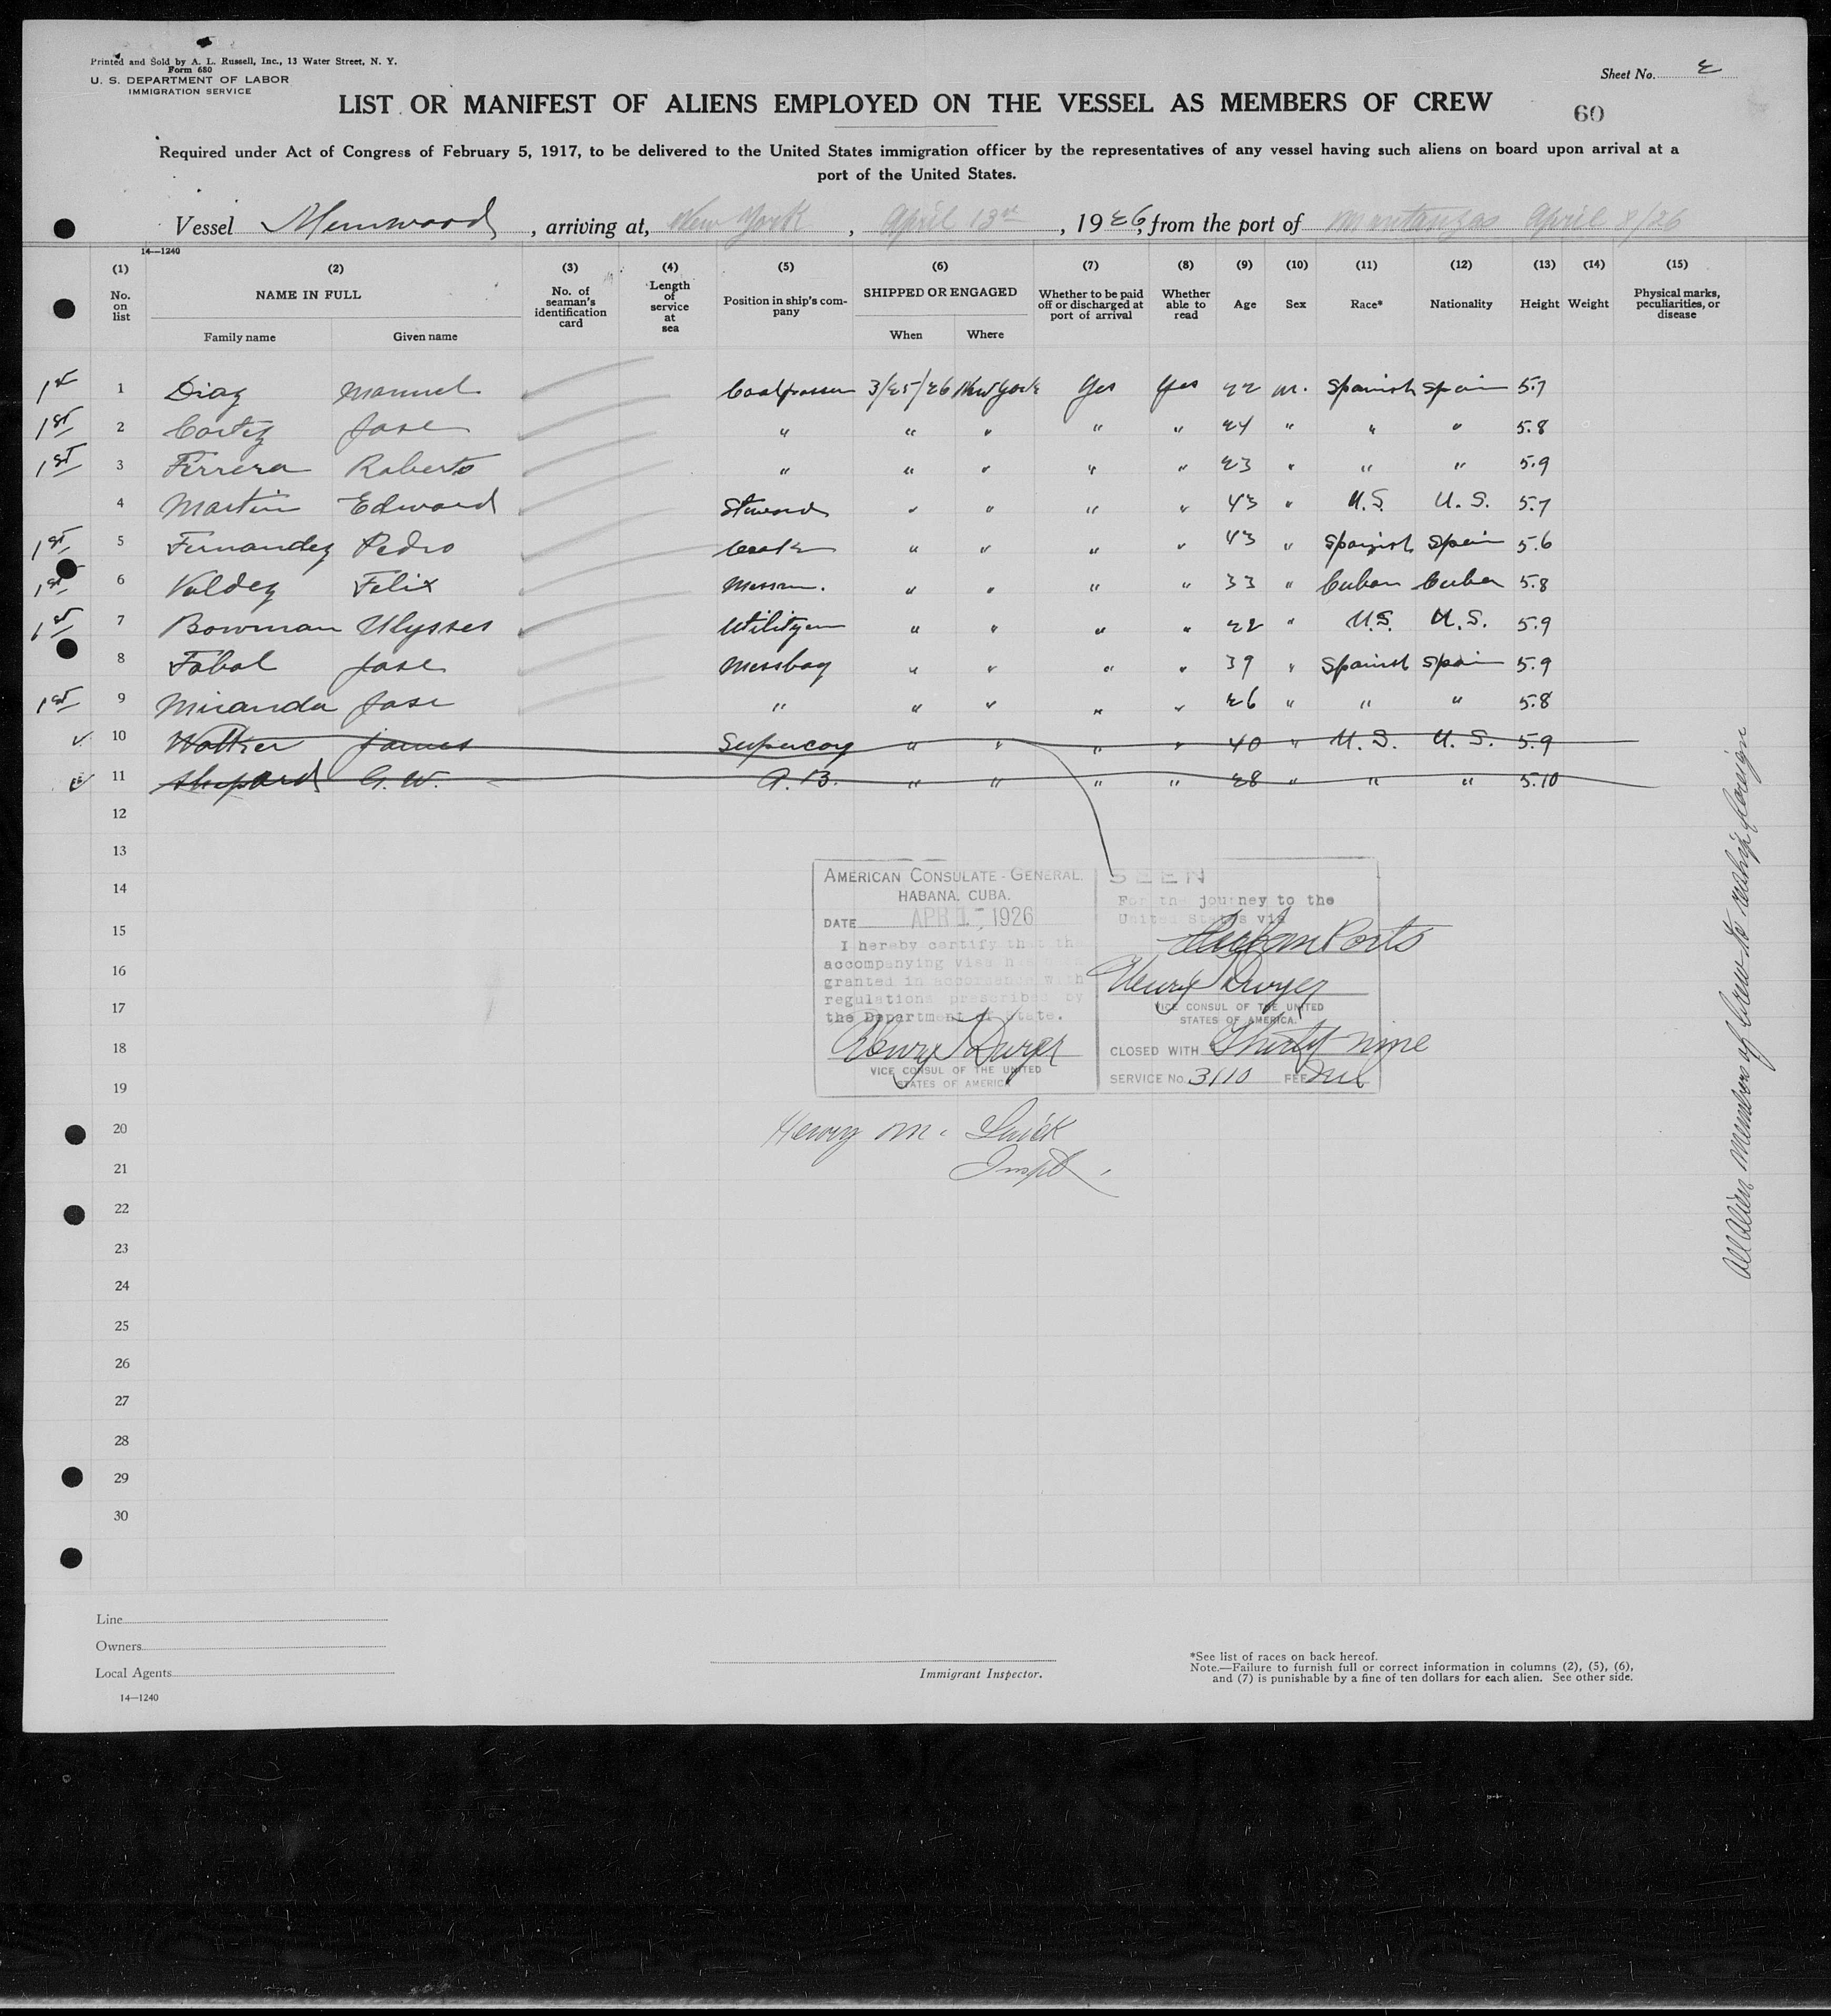 Printed and Sold by A. L. Russell, Inc., 13 Water Street, N. Y.
Form 680
U. S. DEPARTMENT OF LABOR
IMMIGRATION SERVICE
Sheet No. 2
LIST OR MANIFEST OF ALIENS EMPLOYED ON THE VESSEL AS MEMBERS OF CREW
60
Required under Act of Congress of February 5, 1917, to be delivered to the United States immigration officer by the representatives of any vessel having such aliens on board upon arrival at a
port of the United States.
Vessel Munwood, arriving at, New York, April 13th, 1926, from the port of Mantanzas April 8/26
14—1240
(1) (2) (3) (4) (5) (6) (7) (8) (9) (10) (11) (12) (13) (14) (15)
No. on list NAME IN FULL Family name Given name No. of seaman's identification card Length of service at sea Position in ship's company SHIPPED OR ENGAGED When Where Whether to be paid off or discharged at port of arrival Whether able to read Age Sex Race* Nationality Height Weight Physical marks, peculiarities, or disease
1st 1 Diaz Manuel Coalpasser 3/25/26 New York Yes Yes 22 m. Spanish Spain 5.7
1st 2 Cortez Jose " " " " " 24 " " " 5.8
1st 3 Ferrera Roberto " " " " " 23 " " " 5.9
4 Martin Edward Steward " " " " 43 " U.S. U.S. 5.7
1st 5 Fernandez Pedro Cook " " " " 43 " Spanish Spain 5.6
1st 6 Valdez Felix Messm. " " " " 33 " Cuban Cuba 5.8
1st 7 Bowman Ulysses Utilityman " " " " 22 " U.S. U.S. 5.9
8 Fabal Jose Messboy " " " " 39 " Spanish Spain 5.9
1st 9 Miranda Jose " " " " " 26 " " " 5.8
10 Walker James Supercog " " " " 40 " U.S. U.S. 5.9
11 Shepard G.W. A.B. " " " " 28 " " " 5.10
12
13
14
15
16
17
18
19
20
21
22
23
24
25
26
27
28
29
30
AMERICAN CONSULATE-GENERAL,
HABANA, CUBA.
DATE APR 1-, 1926
I hereby certify that the
accompanying visa has been
granted in accordance with
regulations prescribed by
the Department of State.
Henry T Dwyer
VICE CONSUL OF THE UNITED
STATES OF AMERICA
SEEN
For the journey to the
United States via
Cuban Ports
Henry T Dwyer
VICE CONSUL OF THE UNITED
STATES OF AMERICA.
CLOSED WITH Thirty nine
SERVICE No. 3110 FEE Nil
Henry M. Quick
Inspt.
All Alien Members of Crew to reship foreign
Line
Owners
Local Agents
14—1240
Immigrant Inspector.
*See list of races on back hereof.
Note.—Failure to furnish full or correct information in columns (2), (5), (6),
and (7) is punishable by a fine of ten dollars for each alien. See other side.